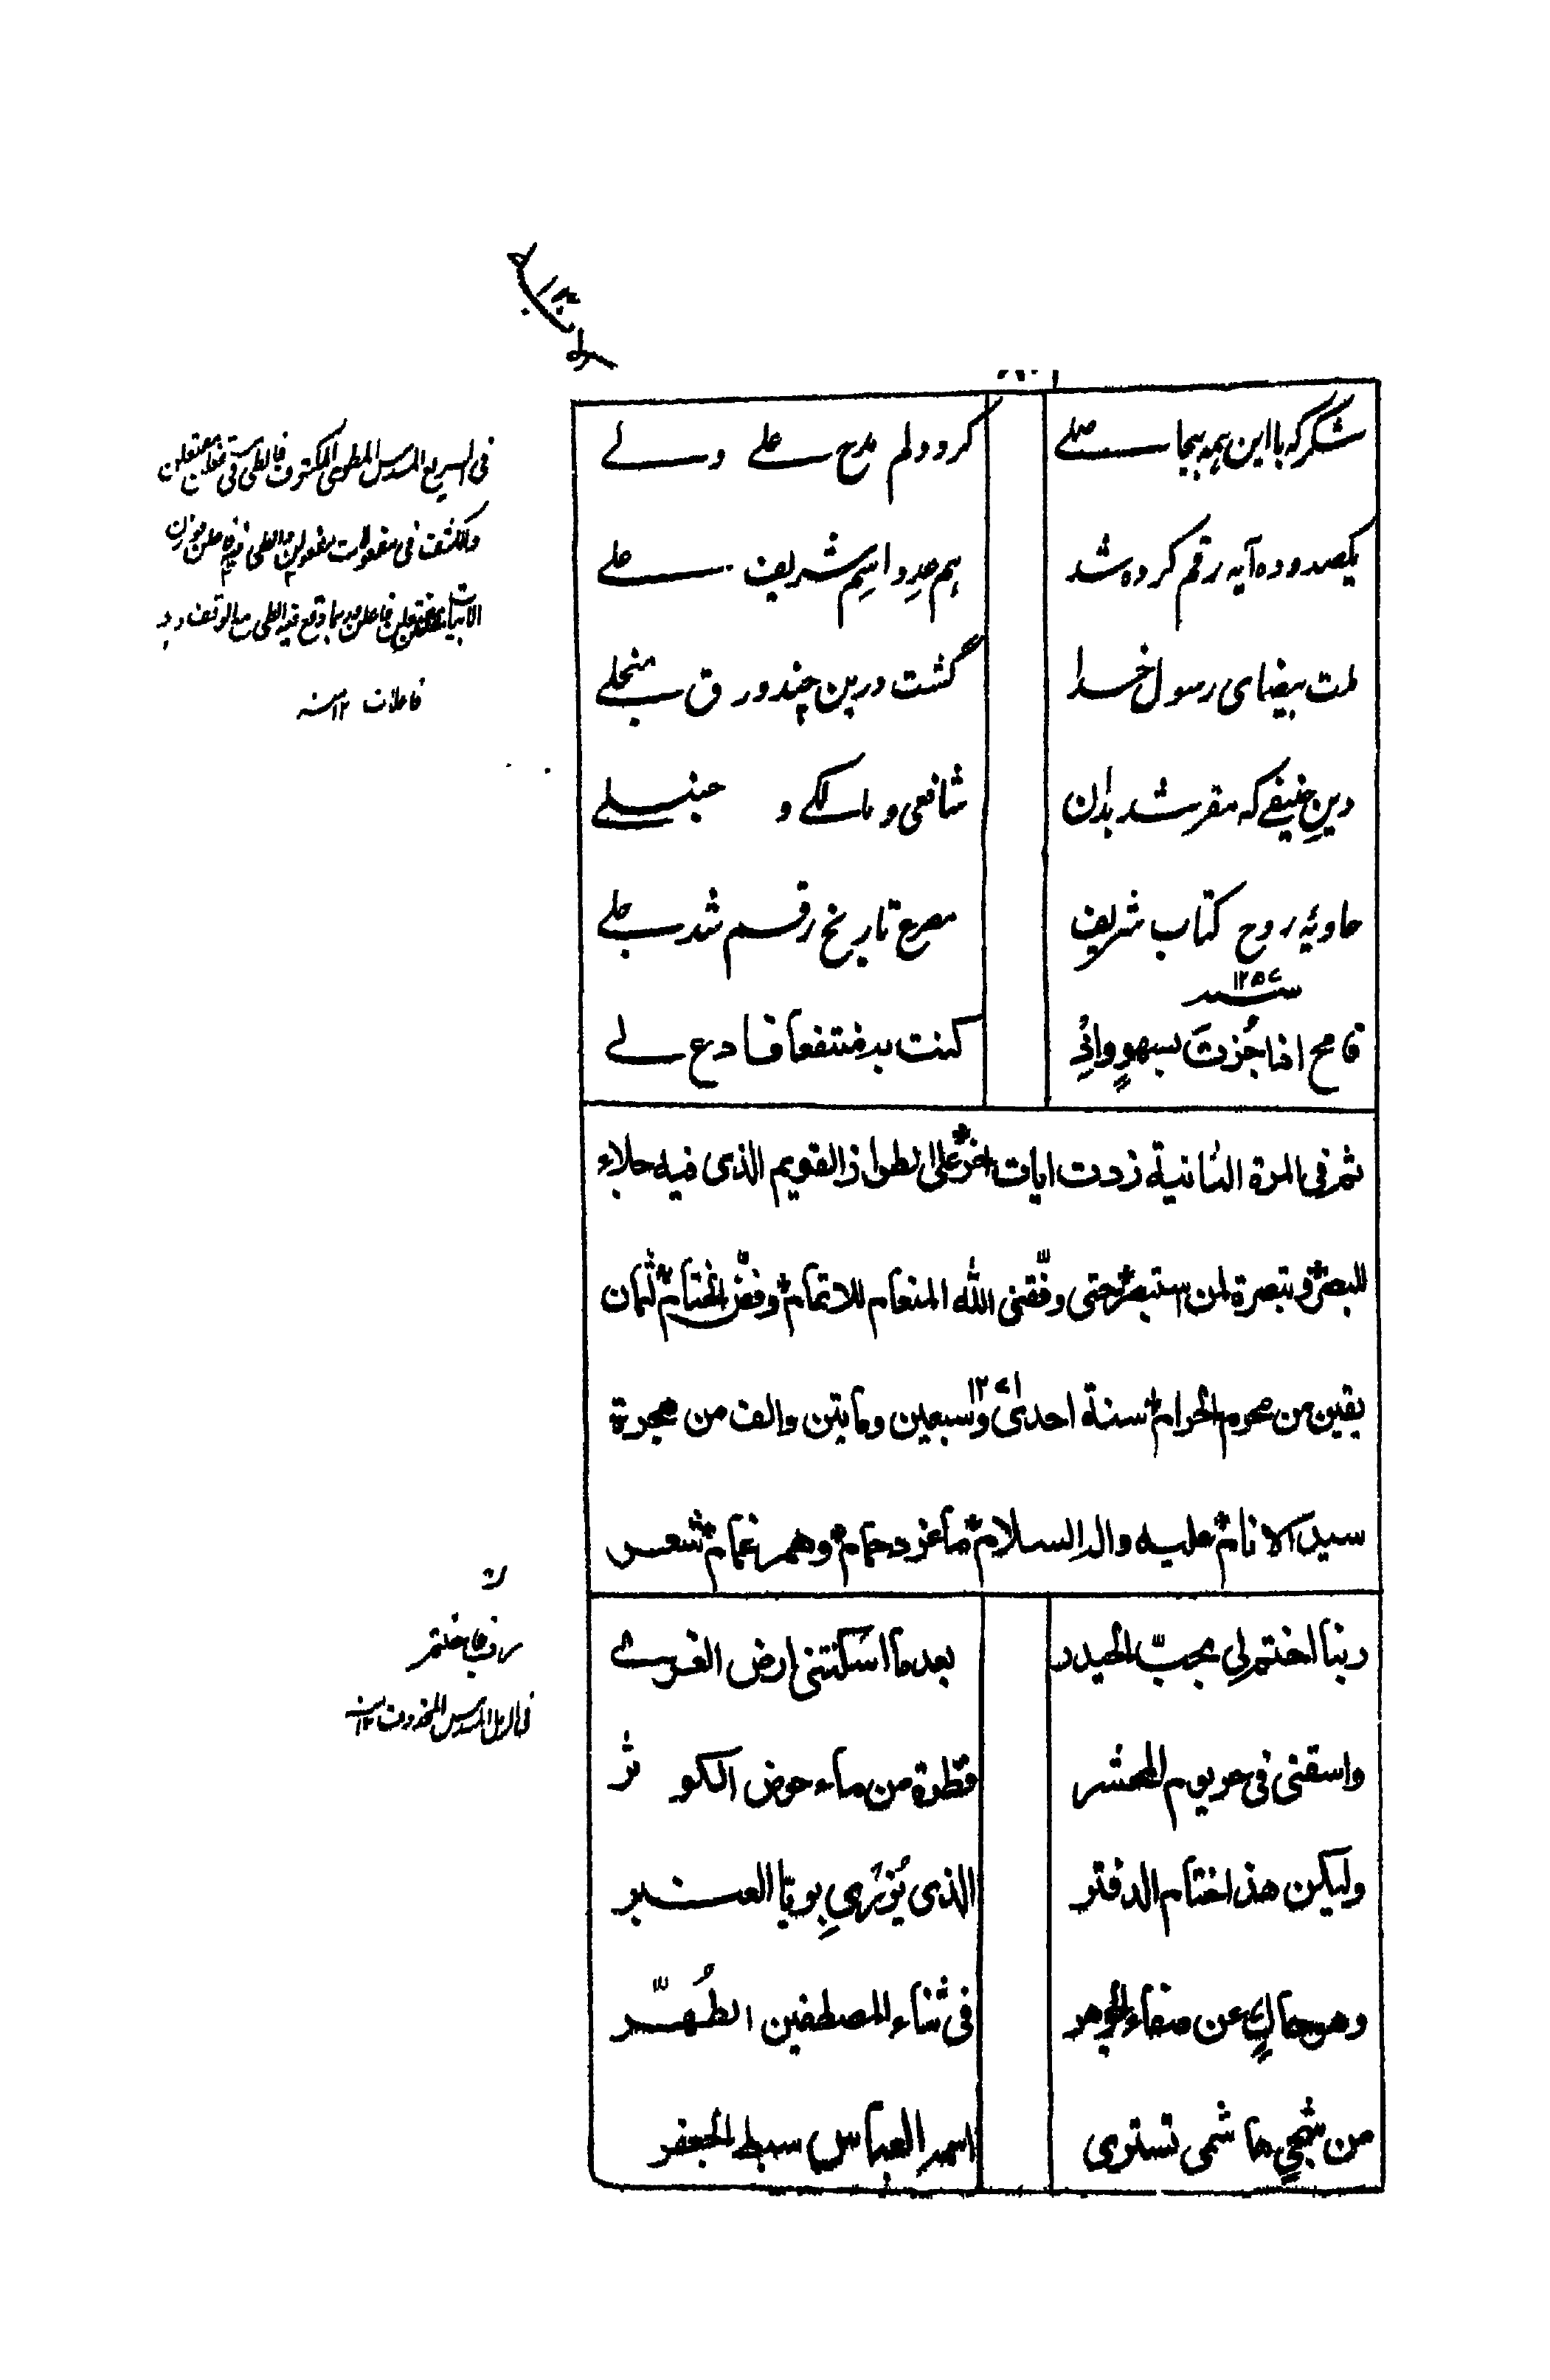 شکر که با این همه بیجا صلے کرد دلم مدح علے ولے
یکصد و ده آیه رقم کرده شد هم عددِ اسمِ شریف علے
ملت بیضای رسول خدا گشت درین چند ورق منجلے
دینِ حنیفے که مقر شد بدان شافعی و مالکے و حنبلے
حاویهٔ روح کتاب شریف مصرع تاریخ رقم شد جلے
سنه ۱۲۵۷
فامح اذا جُزتَ بسهوٍ وانِ کنت به منتفعا فادع لے
ثم فی المرة الثانیة زدت ایات اخر علی الطراز القویم الذی فیه جلاء
للبصر وتبصرة لمن استبصر حتی وفّقنی الله المنعام للاتمام وفضّ الختام لثمان
بقین من محرم الحرام سنة احدی وسبعین ومایتین والف من هجرة
۱۲۷۱
سید الانام علیه واله السلام ما غرد حمام وهمر غمام شعر
ربنا اختم لی بحبّ الحیدر بعد ما اسکنتنی ارض الغری
واسقنی فی حر یوم المحشر قطرة من ماء حوض الکوثر
ولیکن هذا ختام الدفتر الذی یُزری بریّا العنبر
وهو حاکٍ عن صفاء الجوهر فی ثناء المصطفین الطُهّر
من شجیٍ هاشمی تستری اسمه العباس سبط الجعفر
فی السریع المسدس المطوی المکشوف فالطی فی مستفعلن مفتعلن
والکشف فی مفعولات مفعولن والطی فیه فاعلن فوزن
الابیات مفتعلن مفتعلن فاعلن وربما وقع فیه الطی مع الوقف
فاعلات ۱۲ منه
فی الرمل المسدس المحذوف ۱۲ منه